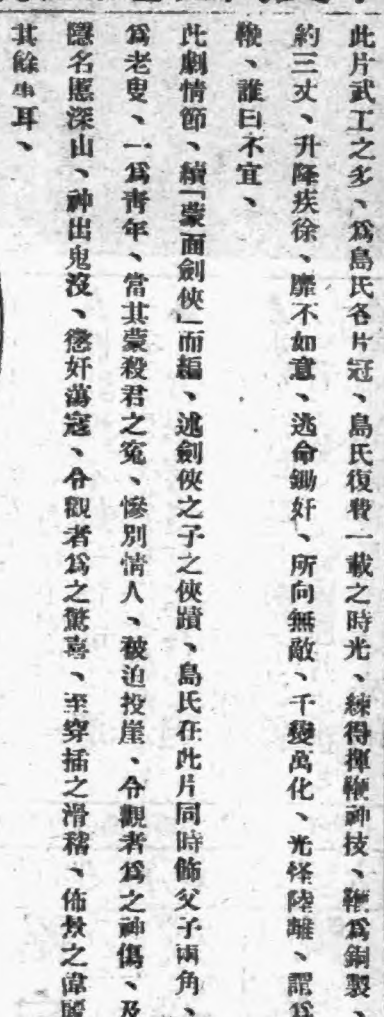 此片武工之多、爲島氏各片冠、島氏復費一載之時光、練得揮鞭神技、鞭爲鋼製、
約三丈、升降疾徐、靡不如意、逃命鋤奸、所向無敵、千變萬化、光怪陸離、謂爲
鞭、誰曰不宜、
此劇情節、續「蒙面劍俠」而編、述劍俠之子之俠蹟、島氏在此片同時飾父子兩角、
爲老叟、一爲青年、當其蒙殺君之冤、慘別情人、被迫投崖、令觀者爲之神傷、及
隱名匿深山、神出鬼沒、懲奸蕩寇、令觀者爲之驚喜、至穿插之滑稽、佈景之偉麗
其餘事耳、